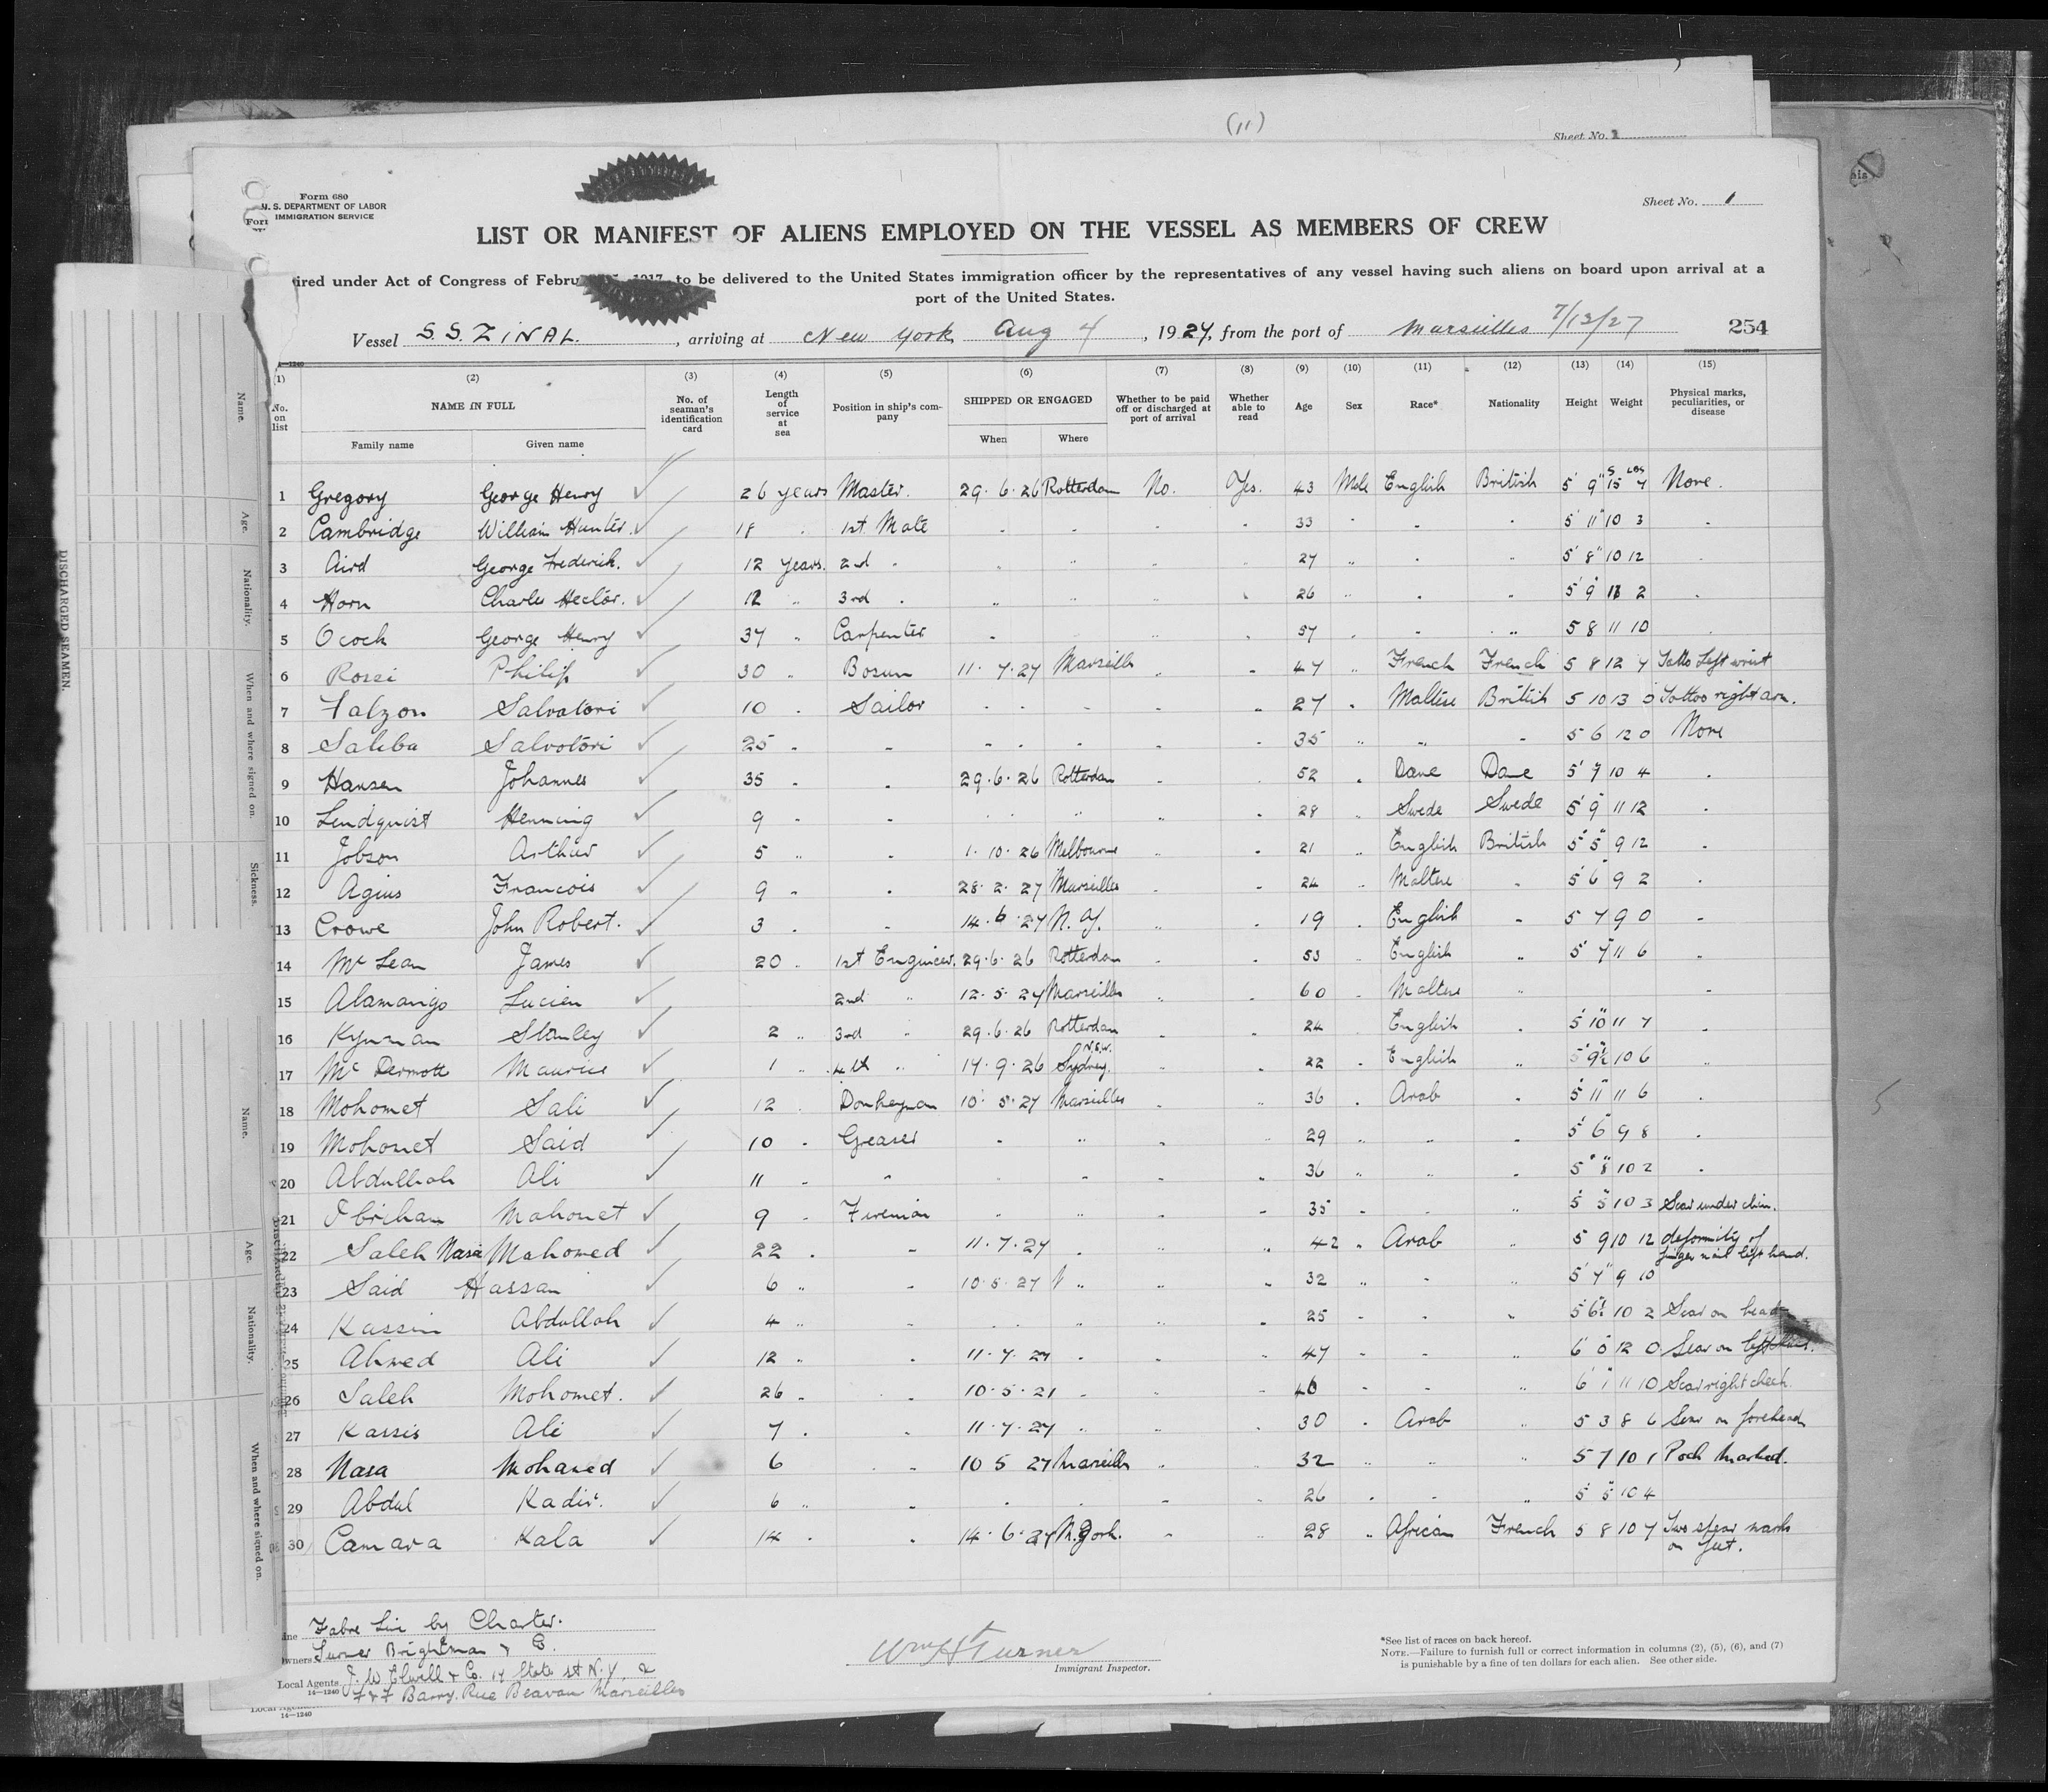 (11)
Sheet No. 2
Form 680
U. S. DEPARTMENT OF LABOR
IMMIGRATION SERVICE
Sheet No. 1
LIST OR MANIFEST OF ALIENS EMPLOYED ON THE VESSEL AS MEMBERS OF CREW
ired under Act of Congress of Febru 1917, to be delivered to the United States immigration officer by the representatives of any vessel having such aliens on board upon arrival at a
port of the United States.
Vessel S.S. ZINAL. , arriving at New York Aug 4 , 1927, from the port of Marseilles 7/13/27 254
(1) (2) (3) (4) (5) (6) (7) (8) (9) (10) (11) (12) (13) (14) (15)
No. on list NAME IN FULL Family name Given name No. of seaman's identification card Length of service at sea Position in ship's company SHIPPED OR ENGAGED When Where Whether to be paid off or discharged at port of arrival Whether able to read Age Sex Race* Nationality Height Weight Physical marks, peculiarities, or disease
1 Gregory George Henry ✓ 26 years Master. 29.6.26 Rotterdam No. Yes. 43 Male English British 5' 9" 15 7 None.
2 Cambridge William Hunter. ✓ 18 " 1st Mate " " " " 33 " " " 5' 11" 10 3 "
3 Aird George Frederick. ✓ 12 years. 2nd " " " " " 27 " " " 5' 8" 10 12 "
4 Horn Charles Hector. ✓ 12 " 3rd " " " " " 26 " " " 5' 9" 2 "
5 Ocock George Henry ✓ 37 " Carpenter " " " " 57 " " " 5 8 11 10
6 Rossi Philip ✓ 30 " Bosun 11.7.27 Marseilles " " 47 " French French 5 8 12 7 Tatto Left wrist
7 Falzon Salvatori ✓ 10 " Sailor " " " " 27 " Maltese British 5 10 13 0 Tattoo right arm.
8 Saliba Salvatori ✓ 25 " " " " " " 35 " " " 5 6 12 0 None
9 Hansen Johannes ✓ 35 " " 29.6.26 Rotterdam " " 52 " Dane Dane 5' 7" 10 4 "
10 Lendquist Henning ✓ 9 " " " " " " 28 " Swede Swede 5' 9" 11 12 "
11 Jobson Arthur ✓ 5 " " 1.10.26 Melbourne " " 21 " English British 5' 5" 9 12 "
12 Agius Francois ✓ 9 " " 28.2.27 Marseilles " " 24 " Maltese " 5' 6" 9 2 "
13 Crowe John Robert. ✓ 3 " " 14.6.27 N.Y. " " 19 " English " 5 7 9 0 "
14 Mc Lean James ✓ 20 " 1st Engineer. 29.6.26 Rotterdam " " 53 " English " 5' 7" 11 6 "
15 Alamango Lucien ✓ 2nd " 12.5.27 Marseilles " " 60 " Maltese " "
16 Kynman Stanley ✓ 2 " 3rd " 29.6.26 Rotterdam " " 24 " English " 5' 10" 11 7 "
17 Mc Dermott Maurice ✓ 1 " 4th " 17.9.26 Sydney N.S.W. " " 22 " English " 5' 9½" 10 6 "
18 Mohomet Sali ✓ 12 " Donkeyman 10.5.27 Marseilles " " 36 " Arab " 5' 11" 11 6 "
19 Mohomet Said ✓ 10 " Greaser " " " " 29 " " " 5' 6" 9 8 "
20 Abdullah Ali ✓ 11 " " " " " " 36 " " " 5' 8" 10 2 "
21 Ibriham Mahomet ✓ 9 " Fireman " " " " 35 " " " 5' 5" 10 3 Scar under chin.
22 Saleh Nasa Mahomed ✓ 22 " " 11.7.27 " " " 42 " Arab " 5 9 10 12 deformity of finger nail left hand.
23 Said Hassan ✓ 6 " " 10.5.27 " " " 32 " " " 5' 7" 9 10
24 Kassim Abdullah ✓ 4 " " " " " " 25 " " " 5' 6½ 10 2 Scar on head
25 Ahmed Ali ✓ 12 " " 11.7.27 " " " 47 " " " 6' 0" 12 0 Scar on left
26 Saleh Mohomet. ✓ 26 " " 10.5.21 " " " 40 " " " 6' 1" 11 10 Scar right cheek
27 Kassis Ali ✓ 7 " " 11.7.27 " " " 30 " Arab " 5 3 8 6 Scar on forehead
28 Nasa Mohamed ✓ 6 " " 10 5 27 Marseilles " " 32 " " " 5 7 10 1 Pock Marked.
29 Abdul Kadir. ✓ 6 " " " " " " 26 " " " 5' 5" 10 4
30 Camara Kala ✓ 14 " " 14.6.27 N. York. " " 28 " African French 5 8 10 7 Two spear marks on feet.
ine Fabre Line by Charter.
Owners Turner Brightman & Co.
Local Agents J. W. Elwell & Co. 17 State st N.Y. &
14—1240 F & F Barry. Rue Beavau Marseilles
Wm H Turner
Immigrant Inspector.
*See list of races on back hereof.
NOTE.—Failure to furnish full or correct information in columns (2), (5), (6), and (7)
is punishable by a fine of ten dollars for each alien. See other side.
14—1240
DISCHARGED SEAMEN.
Name.
Age.
Nationality.
When and where signed on.
Sickness.
Name.
Age.
Nationality.
When and where signed on.